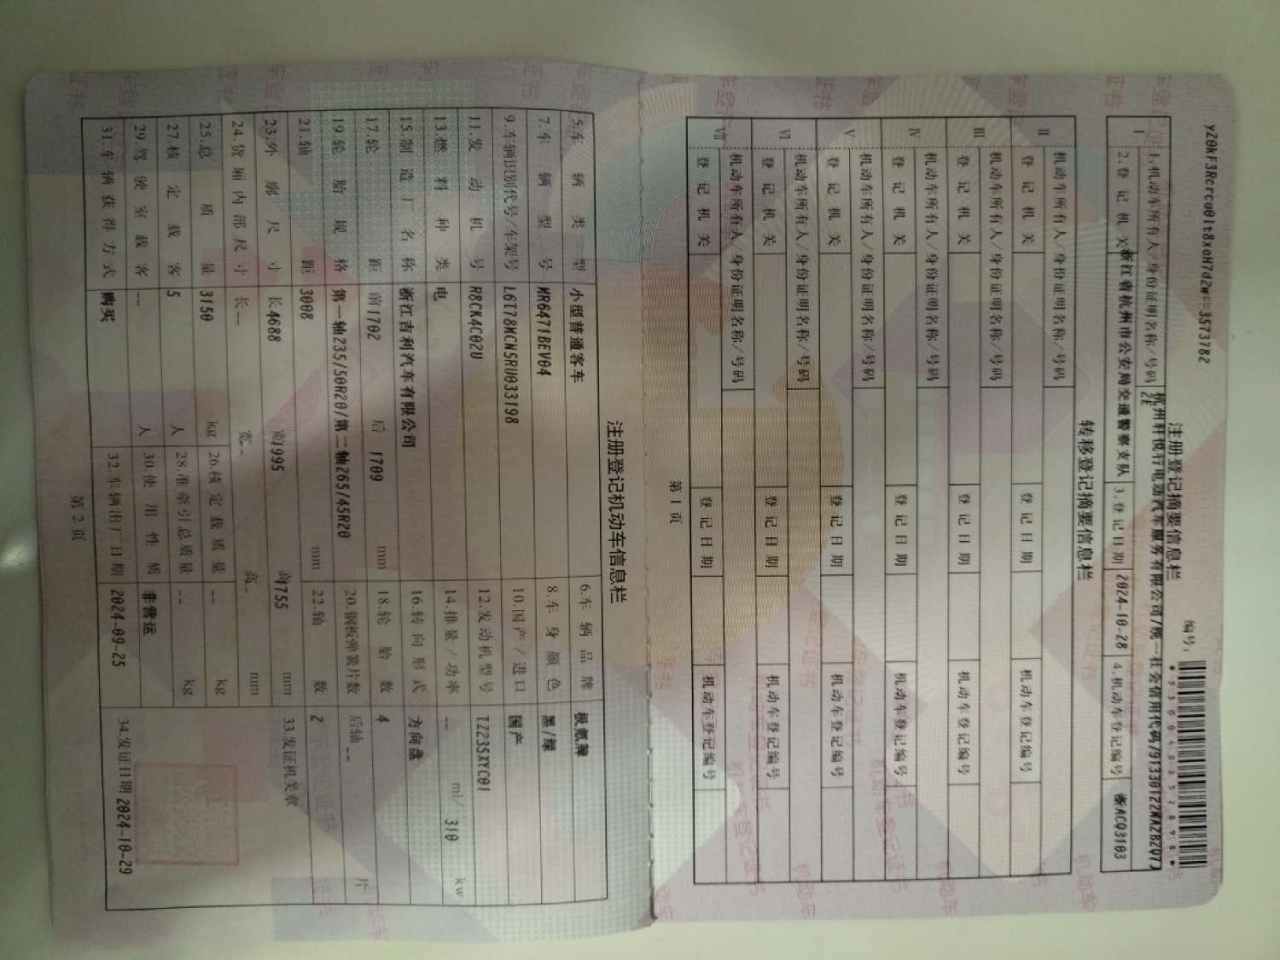 yZ0kF3Rcrcu0lt8xoH7dZw==3573782
编号:
注册登记摘要信息栏
I
1.机动车所有人/身份证明名称/号码 杭州轩悦行电动汽车服务有限公司/统一社会信用代码/
2.登记机关 浙江省杭州市公安局交通警察支队 3.登记日期 2024-10-28 4.机动车登记编号 浙ACQ3103
转移登记摘要信息栏
II 机动车所有人/身份证明名称/号码
登记机关 登记日期 机动车登记编号
III 机动车所有人/身份证明名称/号码
登记机关 登记日期 机动车登记编号
IV 机动车所有人/身份证明名称/号码
登记机关 登记日期 机动车登记编号
V 机动车所有人/身份证明名称/号码
登记机关 登记日期 机动车登记编号
VI 机动车所有人/身份证明名称/号码
登记机关 登记日期 机动车登记编号
VII 机动车所有人/身份证明名称/号码
登记机关 登记日期 机动车登记编号
第 1 页
注册登记机动车信息栏
5.车辆类型 小型普通客车 6.车辆品牌 极氪牌
7.车辆型号 MR6471BEV04 8.车身颜色 黑/绿
9.车辆识别代号/车架号 L6T78MCN5RU033198 10.国产/进口 国产
11.发动机号 R8CK4C02U 12.发动机型号 TZ235XYC01
13.燃料种类 电 14.排量/功率 -- ml/ 310 kw
15.制造厂名称 浙江吉利汽车有限公司 16.转向形式 方向盘
17.轮距 前 1702 后 1709 mm 18.轮胎数 4
19.轮胎规格 第一轴235/50R20/第二轴265/45R20 20.钢板弹簧片数 后轴 -- 片
21.轴距 3008 mm 22.轴数 2
23.外廓尺寸 长 4688 宽 1995 高 1755 mm 33.发证机关章
24.货厢内部尺寸 长 -- 宽 -- 高 -- mm
25.总质量 3150 kg 26.核定载质量 -- kg
27.核定载客 5 人 28.准牵引总质量 -- kg
29.驾驶室载客 -- 人 30.使用性质 非营运
31.车辆获得方式 购买 32.车辆出厂日期 2024-09-25 34.发证日期 2024-10-29
第 2 页